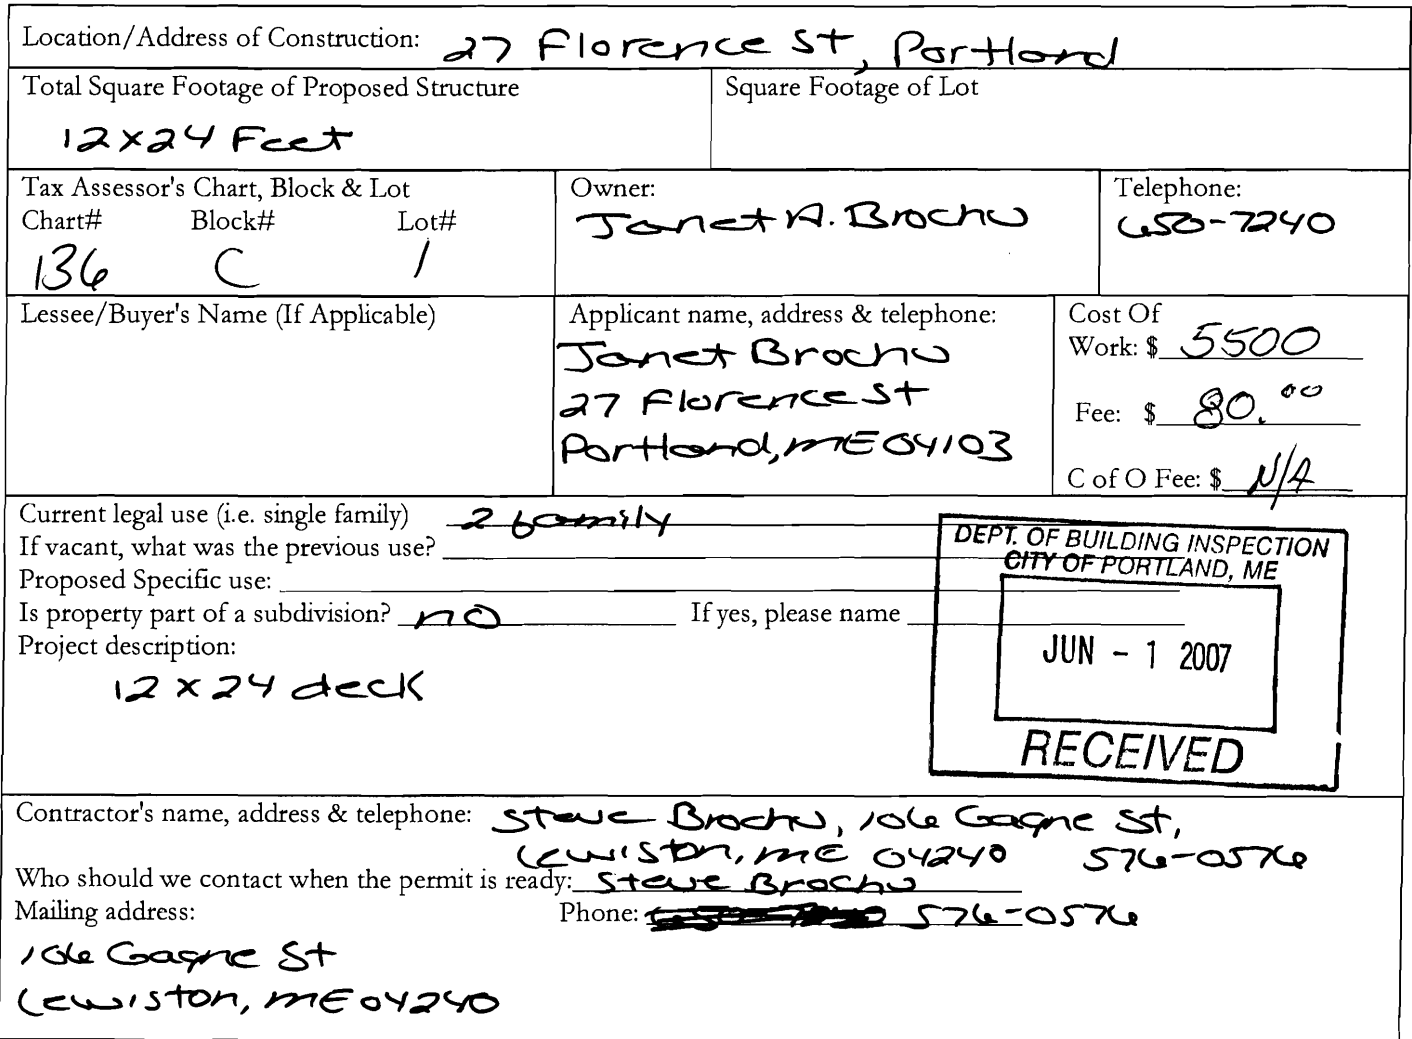 Location/Address of Construction: 27 Florence St, Portland
Total Square Footage of Proposed Structure
12x24 Feet
Square Footage of Lot
Tax Assessor's Chart, Block & Lot
Chart# Block# Lot#
136 C 1
Owner:
Janet A. Brochu
Telephone:
650-7240
Lessee/Buyer's Name (If Applicable)
Applicant name, address & telephone:
Janet Brochu
27 Florence St
Portland, ME 04103
Cost Of
Work: $ 5500
Fee: $ 80.00
C of O Fee: $ N/A
Current legal use (i.e. single family) 2 family
If vacant, what was the previous use?
Proposed Specific use:
Is property part of a subdivision? no If yes, please name
Project description:
12 x 24 deck
DEPT. OF BUILDING INSPECTION
CITY OF PORTLAND, ME
JUN - 1 2007
RECEIVED
Contractor's name, address & telephone: Steve Brochu, 106 Gagne St,
Lewiston, ME 04240 576-0576
Who should we contact when the permit is ready: Steve Brochu
Mailing address: Phone: 576-0576
106 Gagne St
Lewiston, ME 04240